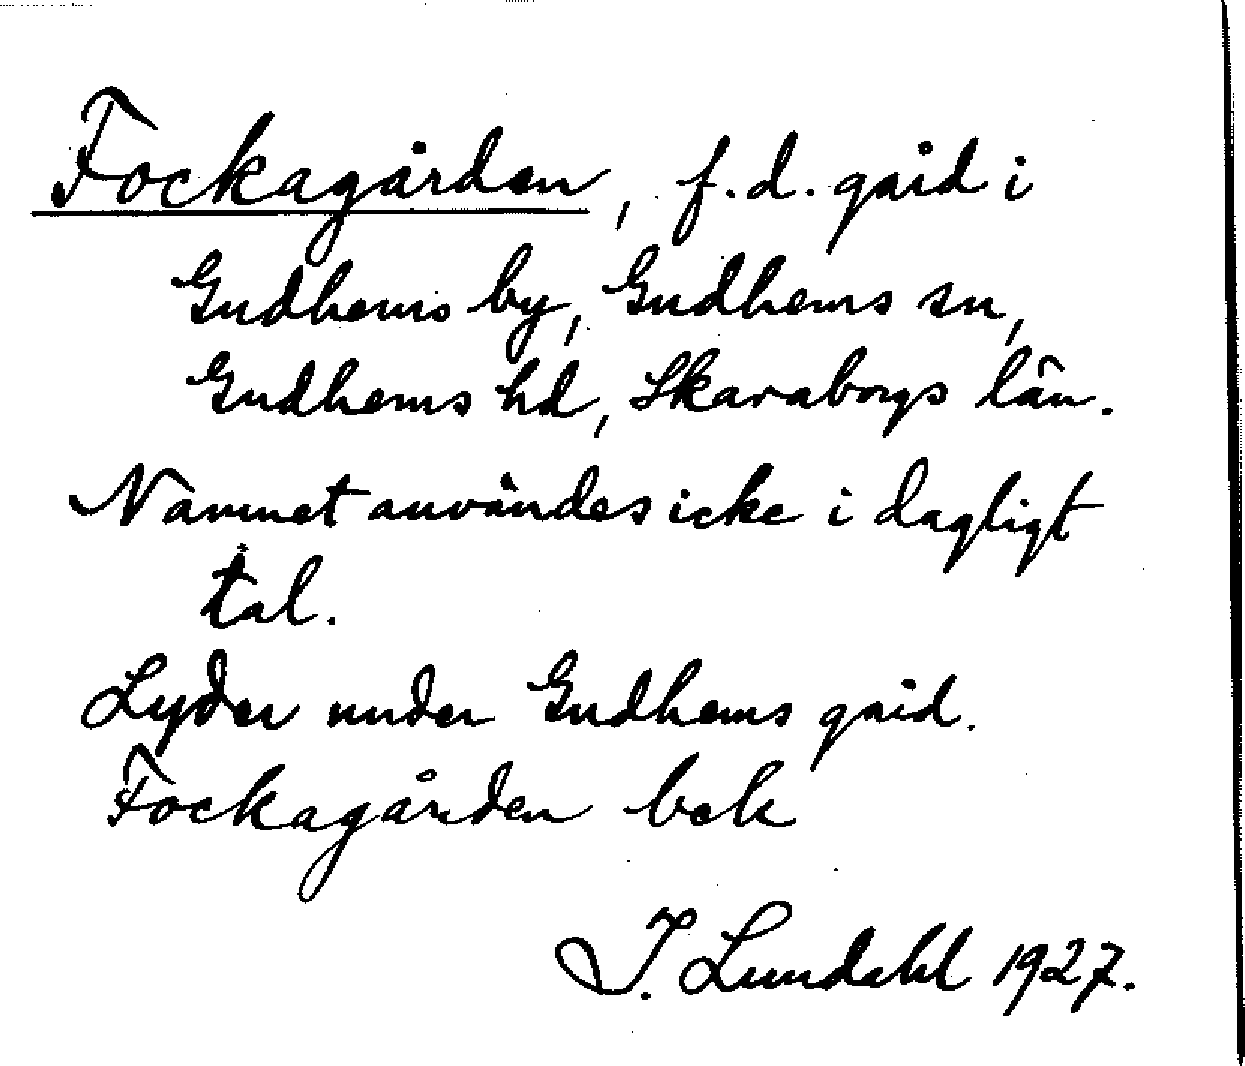 Fockagården, f.d. gård i
Gudhems by, Gudhems sn,
Gudhems hd, Skaraborgs län.
Namnet användes icke i dagligt
tal.
Lyder under Gudhems gård.
Fockagården bek
I. Lundahl 1927.